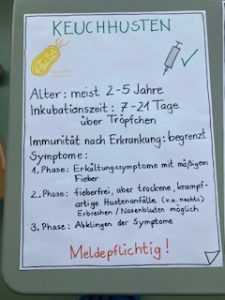 KEUCHHUSTEN
Alter: meist 2-5 Jahre
Inkubationszeit: 7-21 Tage
über Tröpfchen
Immunität nach Erkrankung: begrenzt
Symptome:
1. Phase: Erkältungssymptome mit mäßigem
Fieber
2. Phase: fieberfrei, aber trockene, krampf-
artige Hustenanfälle (v.a. nachts)
Erbrechen / Nasenbluten möglich
3. Phase: Abklingen der Symptome
Meldepflichtig!